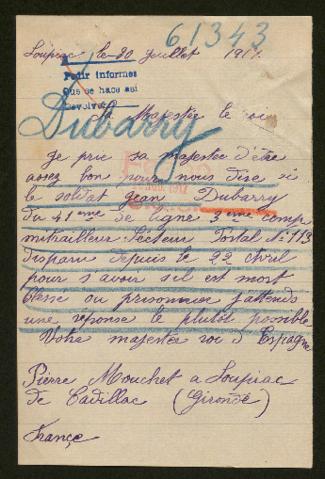 61343
Loupiac le 20 juillet 1917
Pedir informes
Que se hace así
Devolver
A Majestée le roi
Dubarry
Je prie sa majestée d'être
assez bon pour nous dire si
le soldat jean Dubarry
du 41eme de ligne 3eme comp
mitrailleur Secteur Postal No 113
disparu depuis le 22 Avril
pour savoir s'il est mort
blessé ou prisonnier j'attends
une reponse le plutôt possible
Votre majestée roi d'Espagne
Pierre Mouchet a Loupiac
de Cadillac (Gironde)
Françe